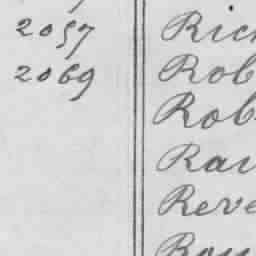 2057 Rich
2069 Rob
Rob
Rau
Reve
Rou